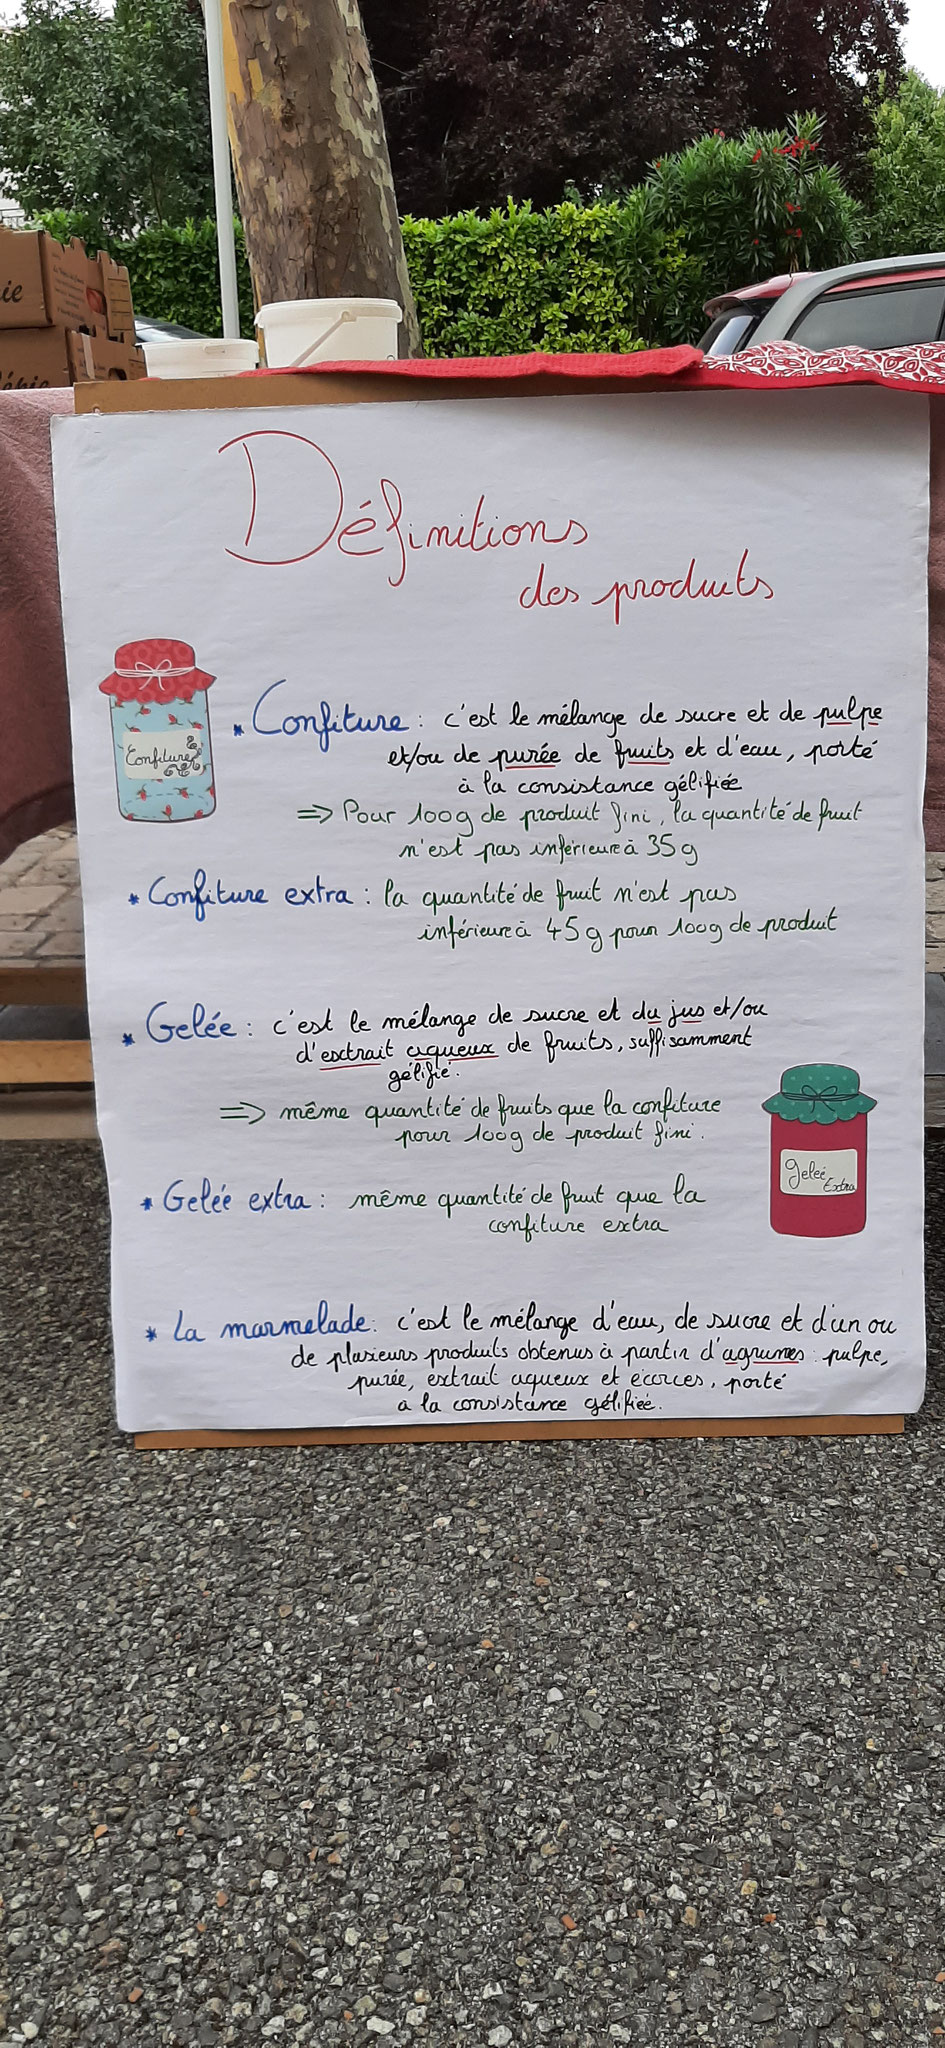 ie
Définitions
des produits
Confiture
* Confiture : c'est le mélange de sucre et de pulpe
et/ou de purée de fruits et d'eau, porté
à la consistance gélifiée
=> Pour 100g de produit fini, la quantité de fruit
n'est pas inférieure à 35g
* Confiture extra : la quantité de fruit n'est pas
inférieure à 45g pour 100g de produit
* Gelée : c'est le mélange de sucre et du jus et/ou
d'extrait aqueux de fruits, suffisamment
gélifié.
=> même quantité de fruits que la confiture
pour 100g de produit fini.
Gelée
Extra
* Gelée extra : même quantité de fruit que la
confiture extra
* La marmelade : c'est le mélange d'eau, de sucre et d'un ou
de plusieurs produits obtenus à partir d'agrumes : pulpe,
purée, extrait aqueux et écorces, porté
à la consistance gélifiée.